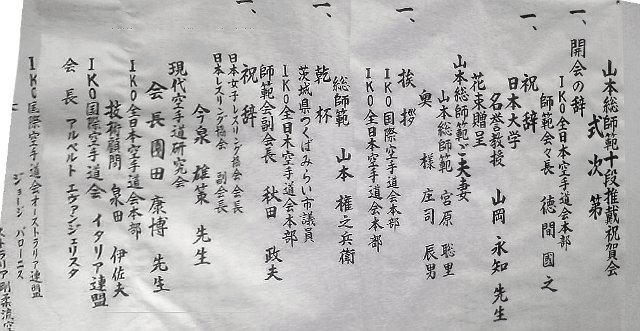 山本総師範十段推戴祝賀会
式次第
一、開会の辞
IKO全日本空手道会本部
師範会々長 徳間國之
一、祝辞
日本大学
名誉教授 山岡永知先生
花束贈呈
山本総師範ご夫妻
山本総師範 宮原聡里
奥様 庄司辰男
一、挨拶
IKO国際空手道会本部
IKO全日本空手道会本部
総師範 山本権之兵衛
一、乾杯
茨城県つくばみらい市議員
IKO全日本空手道会本部
師範会副会長 秋田政夫
一、祝辞
日本女子レスリング協会会長
日本レスリング協会 副会長
今泉雄策先生
現代空手道研究会
会長 園田康博先生
IKO全日本空手道会本部
技術顧問 泉田伊佐夫
IKO国際空手道会 イタリア連盟
会長 アルベルト エヴァンジェリスタ
IKO国際空手道会オーストラリア連盟
ジョージ バローニス
ストラリア剛柔流空